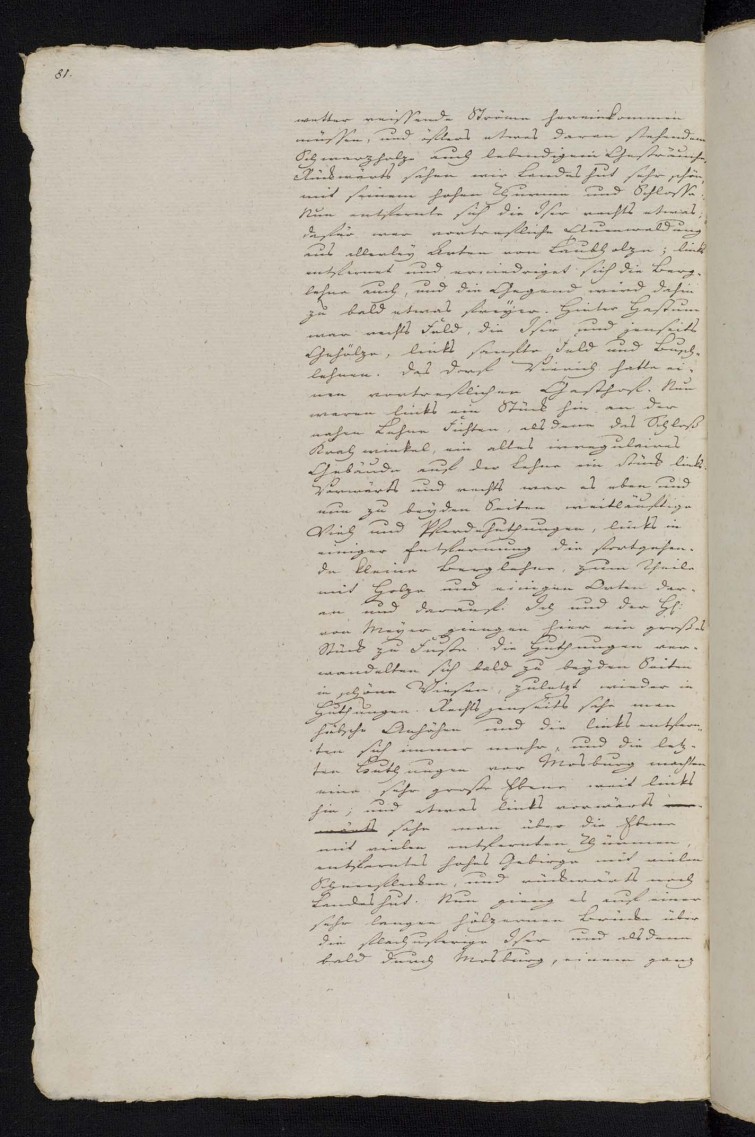 81.
wetter reissende Ströme hereinkommen
müssen, und öfters etwas daran stehendem
Schwarzholze auch lebendigem Gesträuche.
Rückwärts sahen wir Landeshut sehr schön,
mit seinem hohen Thurme und Schlosse.
Nun entfernte sich die Iser rechts etwas;
dafür war vortrefliche Auenwaldung
aus allerley Arten von Laubholze; links
entfernet und erniedriget sich die Berg-
lehne auch, und die Gegend wird dahin
zu bald etwas freyer. Hinter
war rechts Feld, die Iser und jenseits
Gehölze, links sanfte Feld und Busch-
lehnen. Das Dorf hatte ei-
nen vortreflichen Gasthof. Nun
waren links ein Stück hin an der
nahen Lehne Fichten, alsdenn das Schloß
Kronwinkel, ein altes irregulaires
Gebäude auf der Lehne ein Stück links.
Vorwärts und rechts war es eben und
nun zu beyden Seiten weitläuftige
Vieh und Pferdehuthungen, links in
einiger Entfernung die fortgehen-
de kleine Berglehne, zum Theile
mit Holze und einigen Orten dar-
an und darauf. Ich und der H:
von Meyer giengen hier ein großes
Stück zu Fusse. Die Huthungen ver-
wandelten sich bald zu beyden Seiten
in schöne Wiesen, zuletzt wieder in
Huthungen. Rechts jenseits sahe man
hübsche Anhöhen und die links entfern-
ten sich immer mehr, und die letz-
ten Huthungen vor Mosburg machten
eine sehr große Ebene weit links
hin; und etwas links vorwärts
sahe man über die Ebene
mit vielen entfernten Thürmen,
entferntes hohes Gebirge mit vielen
Schneeflecken, und rückwärts noch
Landeshut. Nun gieng es auf einer
sehr langen hölzernen Brücke über
die flachuferige Iser und alsdenn
bald durch Mosburg, einem ganz